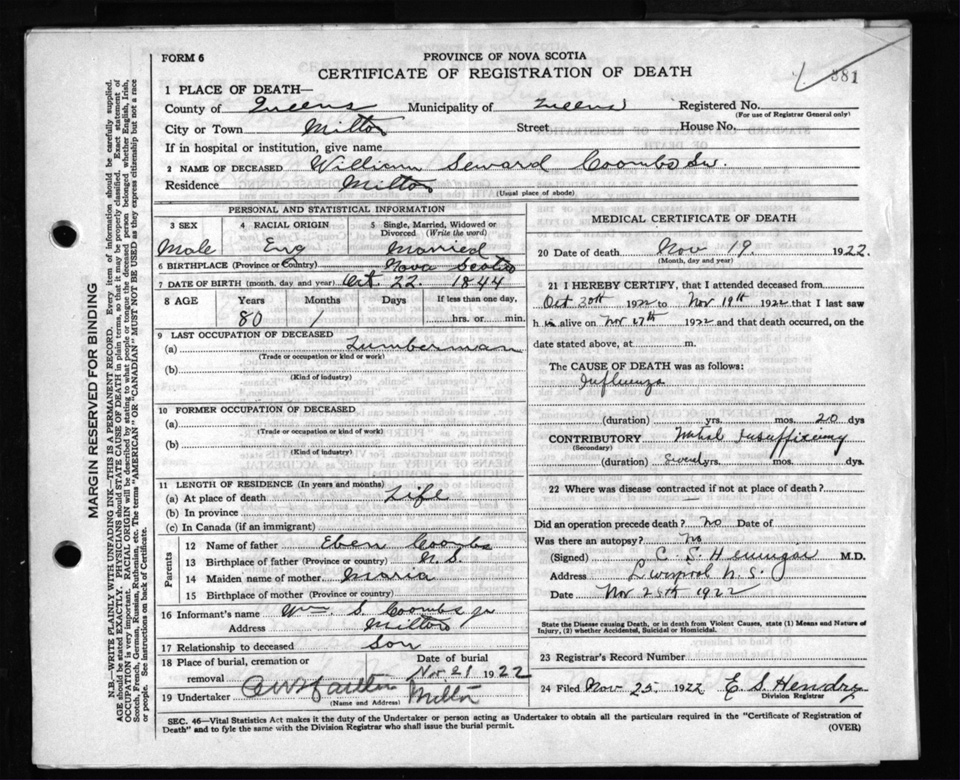 FORM 6
PROVINCE OF NOVA SCOTIA
CERTIFICATE OF REGISTRATION OF DEATH
881
1 PLACE OF DEATH—
County of Queens Municipality of Queens Registered No.
(For use of Registrar General only)
City or Town Milton Street House No.
If in hospital or institution, give name
2 NAME OF DECEASED William Seward Coombs Sr.
Residence Milton
(Usual place of abode)
PERSONAL AND STATISTICAL INFORMATION
3 SEX Male
4 RACIAL ORIGIN Eng
5 Single, Married, Widowed or Divorced (Write the word) Married
6 BIRTHPLACE (Province or Country) Nova Scotia
7 DATE OF BIRTH (month, day and year) Oct. 22. 1844
8 AGE Years Months Days If less than one day,
80 1 hrs. or min.
9 LAST OCCUPATION OF DECEASED
(a) Lumberman
(Trade or occupation or kind or work)
(b)
(Kind of industry)
10 FORMER OCCUPATION OF DECEASED
(a)
(Trade or occupation or kind of work)
(b)
(Kind of industry)
11 LENGTH OF RESIDENCE (In years and months)
(a) At place of death Life
(b) In province
(c) In Canada (if an immigrant)
Parents
12 Name of father Eben Coombs
13 Birthplace of father (Province or country) N.S.
14 Maiden name of mother Maria
15 Birthplace of mother (Province or country)
16 Informant's name Wm. S. Coombs jr
Address Milton
17 Relationship to deceased Son
18 Place of burial, cremation or removal
Date of burial
Nov 21 1922
19 Undertaker Milton
(Name and Address)
MEDICAL CERTIFICATE OF DEATH
20 Date of death Nov 19. 1922
(Month, day and year)
21 I HEREBY CERTIFY, that I attended deceased from
Oct 30th 1922 to Nov 18th 1922 that I last saw
h im alive on Nov 17th 1922 and that death occurred, on the
date stated above, at m.
The CAUSE OF DEATH was as follows:
Influenza
(duration) yrs. mos. 20 dys
CONTRIBUTORY Mitral Insufficiency
(Secondary)
(duration) Several yrs. mos. dys.
22 Where was disease contracted if not at place of death?
Did an operation precede death? no Date of
Was there an autopsy? no
(Signed) C. S. Hennigar M.D.
Address Liverpool N.S.
Date Nov 25th 1922
State the Disease causing Death, or in death from Violent Causes, state (1) Means and Nature of
Injury, (2) whether Accidental, Suicidal or Homicidal.
23 Registrar's Record Number
24 Filed Nov 25. 1922 E. S. Hendry
Division Registrar
SEC. 46—Vital Statistics Act makes it the duty of the Undertaker or person acting as Undertaker to obtain all the particulars required in the "Certificate of Registration of
Death" and to fyle the same with the Division Registrar who shall issue the burial permit.
(OVER)
MARGIN RESERVED FOR BINDING
N.B.—WRITE PLAINLY WITH UNFADING INK—THIS IS A PERMANENT RECORD. Every item of information should be carefully supplied.
AGE should be stated EXACTLY. PHYSICIANS should STATE CAUSE OF DEATH in plain terms, so that it may be properly classified. Exact statement of
OCCUPATION is very important. RACIAL ORIGIN will be described by stating to what people or tongue the deceased person belonged whether English, Irish,
Scotch, French, German, Russian, Ruthenian, etc. The terms "AMERICAN" OR "CANADIAN" MUST NOT BE USED as they express citizenship but not a race
or people. See instructions on back of Certificate.